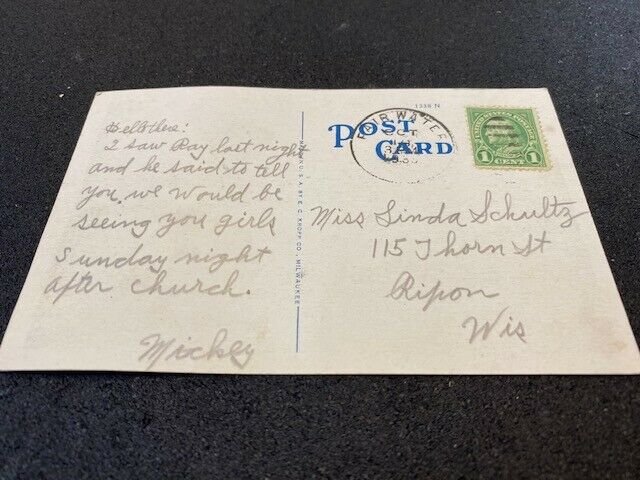 Hello there:
I saw Ray last night
and he said to tell
you we would be
seeing you girls
Sunday night
after church.
Mickey
E. C. KROPP CO., MILWAUKEE
1338 N
POST
CARD
FAIRWATER
OCT
1 CENT 1
Miss Linda Schultz
115 Thorn St
Ripon
Wis